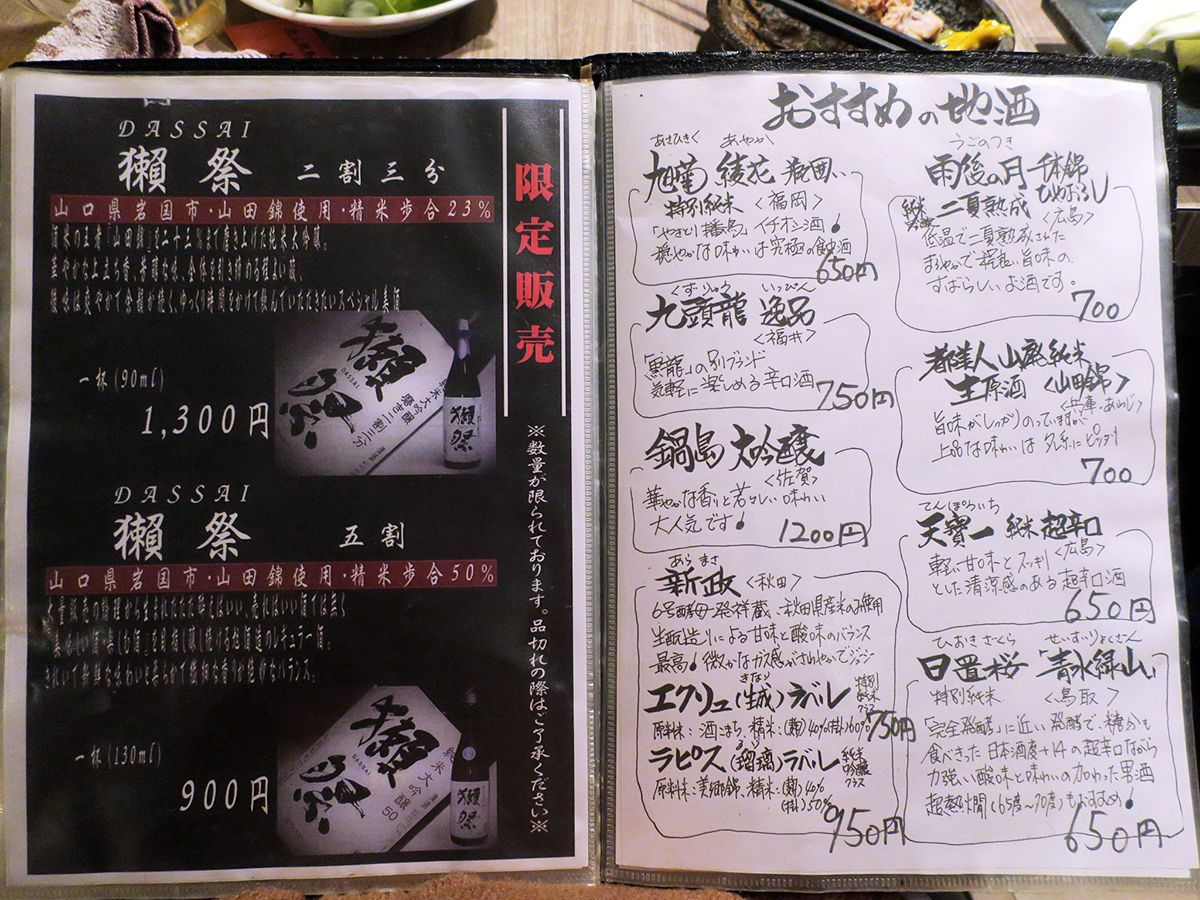 DASSAI
獺祭 二割三分
山口県岩国市・山田錦使用・精米歩合23%
一杯(90ml)
1,300円
獺祭
DASSAI
純米大吟醸
磨き二割三分
獺祭
DASSAI
獺祭 五割
山口県岩国市・山田錦使用・精米歩合50%
一杯(130ml)
900円
獺祭
DASSAI
純米大吟醸50
獺祭
限定販売
※数量が限られております。品切れの際はご了承ください※
おすすめの地酒
あさひきく あやか
旭菊 綾花
特別純米 <福岡>
「やきとり播鳥」イチオシ酒!
穏やかな味わいは究極の食中酒
650円
くずりゅう いっぴん
九頭龍 逸品
<福井>
「黒龍」の別ブランド
気軽に楽しめる辛口酒
750円
鍋島 大吟醸
<佐賀>
華やかな香りと若々しい味わい
大人気です!
1200円
あらまさ
新政 <秋田>
6号酵母発祥蔵、秋田県産米のみ使用
生酛造りによる甘味と酸味のバランス
最高! 微かなガス感がさわやかでジューシー
きなり
エクリュ(生成)ラベル 特別純米クラス
原料米:酒こまち、精米:(麹)40%(掛)60%
750円
るり
ラピス(瑠璃)ラベル 純米吟醸クラス
原料米:美郷錦、精米:(麹)40%
(掛)50%
950円
うごのつき
雨後の月 千本錦
純米吟醸 二夏熟成 ひやおろし
<広島>
低温で二夏熟成された
まろやかで程良い旨味の、
すばらしいお酒です。
700
都美人 山廃純米
生原酒 <山田錦>
<兵庫・あわじ>
旨味がしっかりのっていますが
上品な味わいは
700
てんぽういち
天寶一 純米超辛口
<広島>
軽い甘味とスッキリ
とした清涼感のある超辛口酒
650円
ひおきざくら せいすいりょくざん
日置桜 「青水緑山」
特別純米 <鳥取>
「完全発酵」に近い発酵で、糖分も
食べきった日本酒度+14の超辛口ながら
力強い酸味と味わいの加わった男酒
超熱燗(65度~70度)もおすすめ!
650円